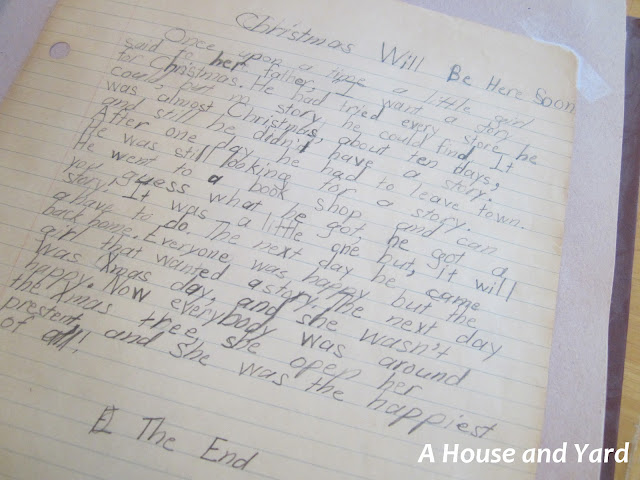 Christmas Will Be Here Soon
Once upon a time a little girl
said to her father, I want a story
for Christmas. He had tried every store he
could, story he could find. It
was almost Christmas, about ten days,
and still he didn't have a story.
After one day he had to leave town.
He was still looking for a story.
He went to a book shop and can
you guess what he got, he got a
story. It was a little one but, it will
a have to do. The next day he came
back home. Everyone was happy but the
girl that wanted a story. The next day
was Xmas day, and she wasn't
happy. Now everybody was around
the Xmas tree, she open her
present and she was the happiest
of all!
The End
A House and Yard